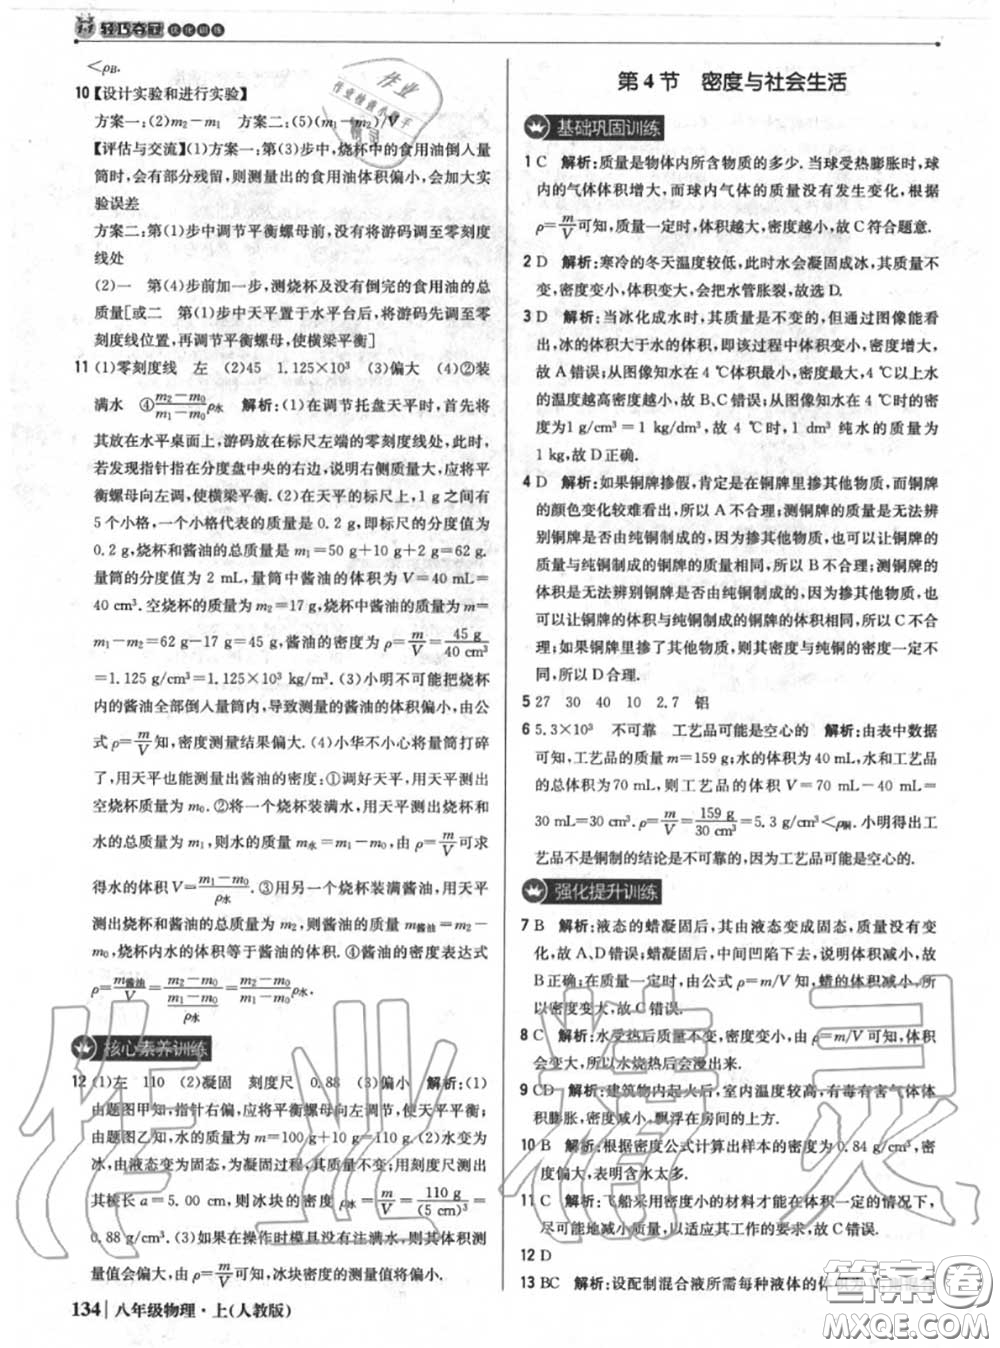 轻巧夺冠 优化训练
<ρB.
10【设计实验和进行实验】
方案一:(2)m₂－m₁ 方案二:(5)(m₁－m₂)/V
【评估与交流】(1)方案一:第(3)步中,烧杯中的食用油倒入量
筒时,会有部分残留,则测量出的食用油体积偏小,会加大实
验误差
方案二:(1)第(1)步中调节平衡螺母前,没有将游码调至零刻度
线处
(2)一 第(4)步前加一步,测烧杯及没有倒完的食用油的总
质量[或二 第(1)步中天平置于水平台后,将游码先调至零刻
度线位置,再调节平衡螺母,使横梁平衡]
11 (1)零刻度线 左 (2)45 1.125×10³ (3)偏大 (4)②装
满水 ④(m₂－m₀)/(m₁－m₀)ρ水 解析:(1)在调节托盘天平时,首先将
其放在水平桌面上,游码放在标尺左端的零刻度线处,此时,
若发现指针指在分度盘中央的右边,说明右侧质量大,应将平
衡螺母向左调,使横梁平衡. (2)天平的标尺上,1 g之间有
5个小格,一个小格代表的质量是0.2 g,即标尺的分度值为
0.2 g,烧杯和酱油的总质量是m₁=50 g+10 g+2 g=62 g.
量筒的分度值为2 mL,量筒中酱油的体积为V=40 mL=
40 cm³. 空烧杯的质量为m₂=17 g,烧杯中酱油的质量m=
m₁－m₂=62 g－17 g=45 g,酱油的密度为ρ=m/V=45 g/40 cm³
=1.125 g/cm³=1.125×10³ kg/m³. (3)小明不可能把烧杯内
酱油全部倒入量筒内,导致测量的酱油体积偏小,由公
式ρ=m/V知,密度测量结果偏大. (4)小华不小心将量筒打碎
了,用天平也能测量出酱油的密度:①调好天平,用天平测出
空烧杯质量为m₀. ②将一个烧杯装满水,用天平测出烧杯和
水的总质量为m₁,则水的质量m水=m₁－m₀,由ρ=m/V可求
得水的体积V=(m₁－m₀)/ρ水. ③把烧杯中的水倒尽,再装满酱油,用天平
测出烧杯和酱油的总质量为m₂,则酱油的质量m酱油=m₂－
m₀,烧杯内水的体积等于酱油的体积. ④酱油的密度表达式
ρ=m酱油/V=(m₂－m₀)/((m₁－m₀)/ρ水)=(m₂－m₀)/(m₁－m₀)ρ水.
核心素养训练
12 (1)左 110 (2)凝固 刻度尺 0.88 (3)偏小 解析:(1)
由题图甲知,指针右偏,应将平衡螺母向左调,使天平平衡;
由题图乙知,水的质量m=100 g+10 g=110 g. (2)水变成
冰,由液态变为固态,是凝固现象;用刻度尺测出
其棱长a=5.00 cm,则冰块的密度ρ冰=m/V=110 g/(5 cm)³=
0.88 g/cm³. (3)如果在操作时模具没有注满水,则m的测
量值会偏大,由ρ=m/V知,冰块密度的测量值应偏小.
134 八年级物理·上(人教版)
第4节 密度与社会生活
基础巩固训练
1 C 解析:质量是物体内所含物质的多少. 当球受热膨胀时,球
内的气体体积增大,而球内气体的质量没有发生变化,根据
ρ=m/V可知,质量一定时,体积越大,密度越小,故C符合题意.
2 D 解析:寒冷的冬天温度较低,此时水会凝固成冰,其质量不
变,密度变小,体积变大,会把水管胀裂,故选D.
3 D 解析:当冰化成水时,其质量是不变的,但通过图像能看
出,冰的体积大于水的体积,即该过程中体积变小,密度增大,
故A错误;从图像知水在4℃时体积最小,密度最大,4℃以上
的水温度越高密度越小,故B、C错误;从图像知水在4℃时的密
度为1 g/cm³=1 kg/dm³,故4℃时,1 dm³水的质量为
1 kg,故D正确.
4 D 解析:如果铜牌掺假,肯定是在铜牌里掺其他物质,而铜牌
的颜色变化较难看出来,所以A不合理;测铜牌的质量是无法辨
别铜牌是否由纯铜制成的,因为掺其他物质,也可以让铜牌的质
量与纯铜制成的铜牌的质量相同,所以B不合理;测铜牌的体
积是无法辨别铜牌是否由纯铜制成的,因为掺其他物质,也可
以让铜牌的体积与纯铜制成的铜牌的体积相同,所以C不合
理;如果铜牌里掺了其他物质,则铜牌的密度与纯铜的密度不
同,所以D合理.
5 27 30 40 10 2.7 铝
6 5.3×10³ 不可靠 工艺品可能是空心的 解析:由表中数据
可知,工艺品的质量m=159 g;水的体积为40 mL,水和工艺品
的总体积为70 mL,则工艺品的体积V=70 mL－40 mL=
30 mL=30 cm³. ρ=m/V=159 g/30 cm³=5.3 g/cm³<ρ铜. 小明得出工
艺品不是铜制的结论是不可靠的,因为工艺品可能是空心的.
强化提升训练
7 B 解析:液态的蜡凝固后,其由液态变成固态,质量没有变
化,故A、D错误;蜡凝固后,中间凹陷下去,说明体积减小,故
B正确;在质量一定时,由公式ρ=m/V知,蜡的体积变小,所
以密度变大,故C错误.
8 C 解析:水受热后质量不变,密度变小,由ρ=m/V可知,体积
会变大,所以水烧热后会漫出来.
9 CD 解析:建筑物内起火后,室内温度较高,有毒有害气体体
积膨胀,密度减小,飘浮在房间的上方.
10 B 解析:根据密度公式计算出样本的密度为0.84 g/cm³,密
度偏大,表明含水太多.
11 C 解析:飞船采用密度小的材料才能在体积一定的情况下,
尽可能地减小质量,以适应其工作的要求,故C正确.
12 D
13 BC 解析:设配制混合液所需每种液体的体
作业精灵
答案圈